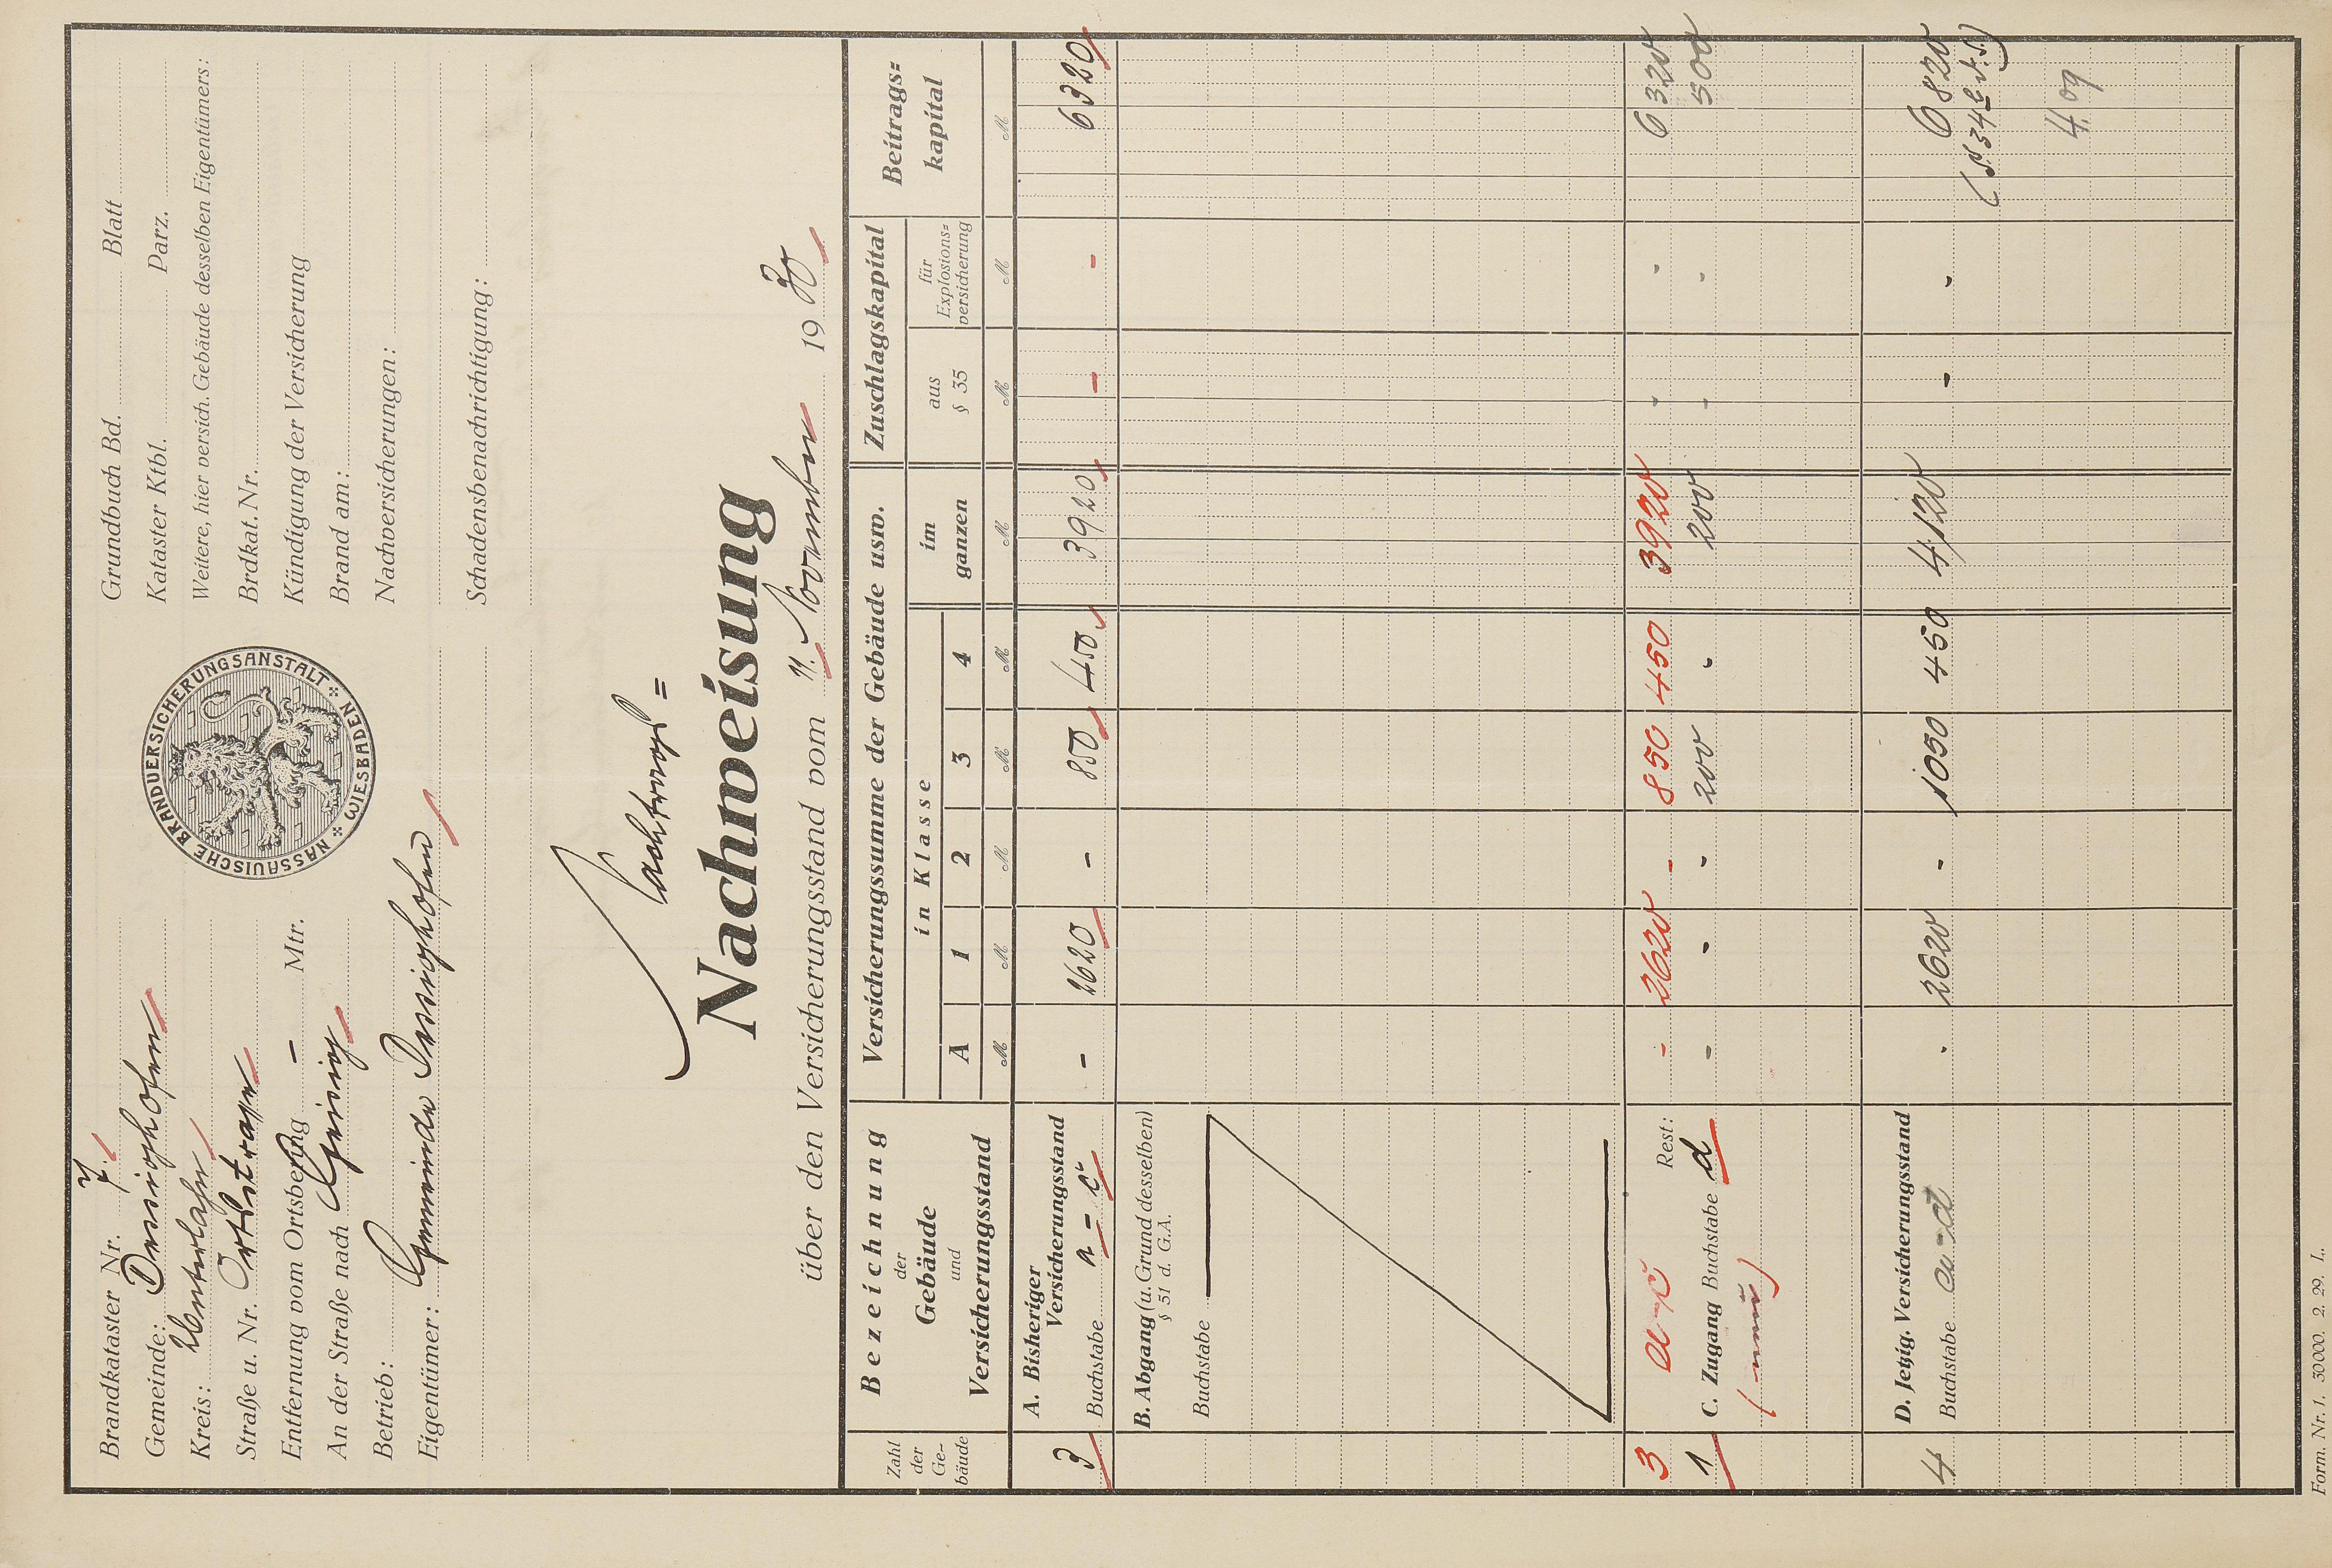 Brandkataster Nr. 7.
Gemeinde: Dessighofen
Kreis: Unterlahn
Straße u. Nr. Ortstrasse
Entfernung vom Ortsbering – Mtr.
An der Straße nach Geisig
Betrieb:
Eigentümer: Gemeinde Dessighofen
NASSAUISCHE BRANDVERSICHERUNGSANSTALT
WIESBADEN
Grundbuch Bd. Blatt
Kataster Ktbl. Parz.
Weitere, hier versich. Gebäude desselben Eigentümers:
Brdkat. Nr.
Kündigung der Versicherung
Brand am:
Nachversicherungen:
Schadensbenachrichtigung:
Nachtrags=
Nachweisung
über den Versicherungsstand vom 11. November 1930
Zahl der Ge-bäude
Bezeichnung
der
Gebäude
und
Versicherungsstand
Versicherungssumme der Gebäude usw.
in Klasse
A 1 2 3 4
im ganzen
Zuschlagskapital
aus § 35
für Explosions=versicherung
Beitrags=kapital
M M M M M M M M M
A. Bisheriger
Versicherungsstand
3 Buchstabe a = c – 2620 – 850 450 3920 – – 6320
B. Abgang (u. Grund desselben)
§ 51 d. G.A.
Buchstabe
Rest:
3 a-c - 2620 - 850 450 3920 - - 6320
1 C. Zugang Buchstabe d - - - 200 - 200 - - 500
( neu )
D. Jetzig. Versicherungsstand
4 Buchstabe a-d - 2620 - 1050 450 4120 - - 6820
(§ 34 b d. S.)
4.09
Form. Nr. 1. 30000. 2. 29. L.